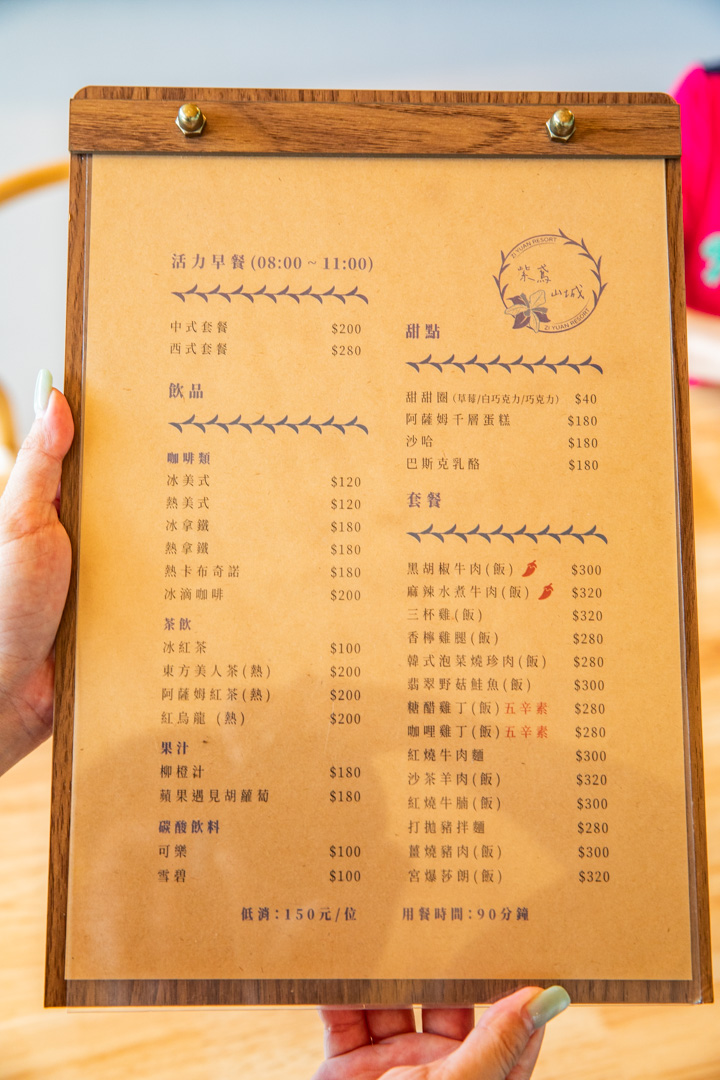 活力早餐(08:00~11:00)
中式套餐 $200
西式套餐 $280
飲品
咖啡類
冰美式 $120
熱美式 $120
冰拿鐵 $180
熱拿鐵 $180
熱卡布奇諾 $180
冰滴咖啡 $200
茶飲
冰紅茶 $100
東方美人茶(熱) $200
阿薩姆紅茶(熱) $200
紅烏龍 (熱) $200
果汁
柳橙汁 $180
蘋果遇見胡蘿蔔 $180
碳酸飲料
可樂 $100
雪碧 $100
ZI YUAN RESORT
紫鳶
山城
ZI YUAN RESORT
甜點
甜甜圈(草莓/白巧克力/巧克力) $40
阿薩姆千層蛋糕 $180
沙哈 $180
巴斯克乳酪 $180
套餐
黑胡椒牛肉(飯) $300
麻辣水煮牛肉(飯) $320
三杯雞(飯) $320
香檸雞腿(飯) $280
韓式泡菜燒珍肉(飯) $280
翡翠野菇鮭魚(飯) $300
糖醋雞丁(飯)五辛素 $280
咖哩雞丁(飯)五辛素 $280
紅燒牛肉麵 $300
沙茶羊肉(飯) $320
紅燒牛腩(飯) $300
打拋豬拌麵 $280
薑燒豬肉(飯) $300
宮爆莎朗(飯) $320
低消:150元/位 用餐時間:90分鐘